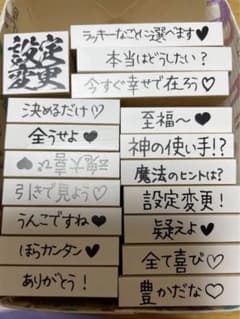 設定
変更
ラッキーなごとに選べます♥
本当はどうしたい？
今すぐ幸せで在ろう♡
決めるだけ♡
全うせよ♥
魂大喜び♡
引きで見よう♡
うんこですね♥
ほらカンタン♥
ありがとう！
至福〜♥
神の使い手!?
魔法のヒントは?
設定変更！
疑えよ♥
全て喜び♡
豊かだな♡